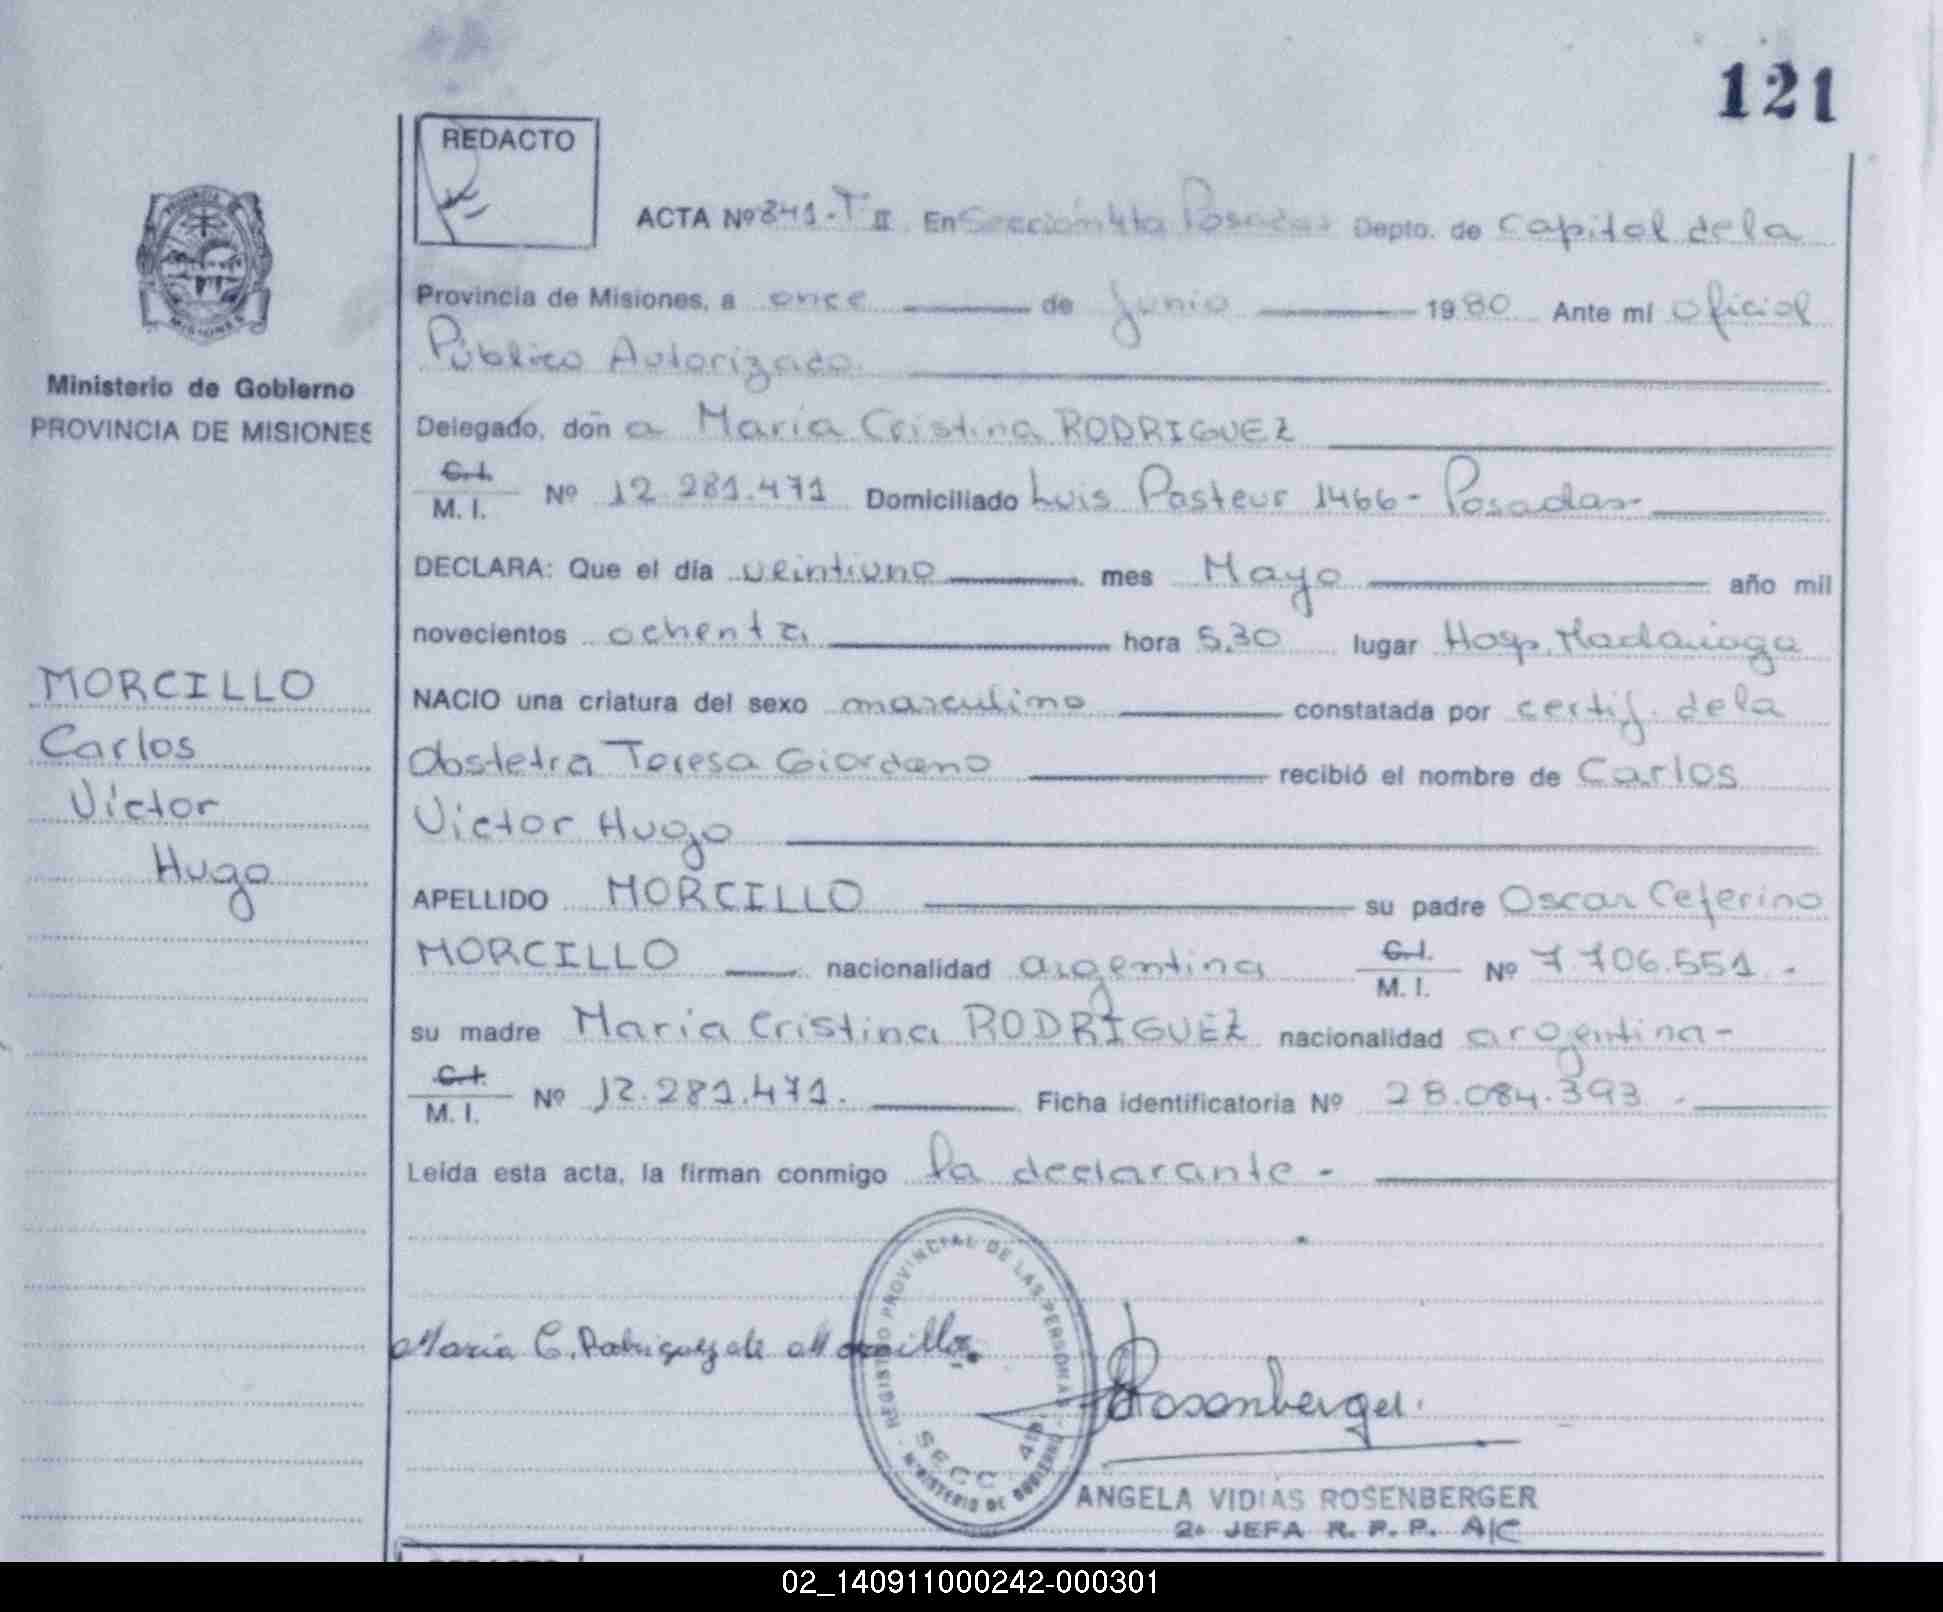 121
REDACTO
ACTA Nº 841-T II En Sección 4ta Posadas Depto. de Capital de la
Provincia de Misiones, a once de Junio 1980 Ante mi oficial
Público Autorizado.
Ministerio de Gobierno
PROVINCIA DE MISIONES
Delegado, doña María Cristina RODRIGUEZ
C.I.
M. I. Nº 12.281.471 Domiciliado Luis Pasteur 1466- Posadas-
DECLARA: Que el día veintiuno mes Mayo año mil
novecientos ochenta hora 5,30 lugar Hosp. Madariaga
MORCILLO
Carlos
Victor
Hugo
NACIO una criatura del sexo masculino constatada por certif. de la
Obstetra Teresa Giordano recibió el nombre de Carlos
Victor Hugo
APELLIDO MORCILLO su padre Oscar Ceferino
MORCILLO nacionalidad argentina C.I.
M. I. Nº 7.706.551.-
su madre María Cristina RODRIGUEZ nacionalidad argentina-
C.I.
M. I. Nº 12.281.471. Ficha identificatoria Nº 28.084.393.-
Leída esta acta, la firman conmigo la declarante-
María C. Rodriguez de Morcillo.
REGISTRO PROVINCIAL DE LAS PERSONAS
SECC. 4ta
MINISTERIO DE GOBIERNO
Rosenberger.
ANGELA VIDIAS ROSENBERGER
2a JEFA R. P. P. A/C
REDACTO
02_140911000242-000301